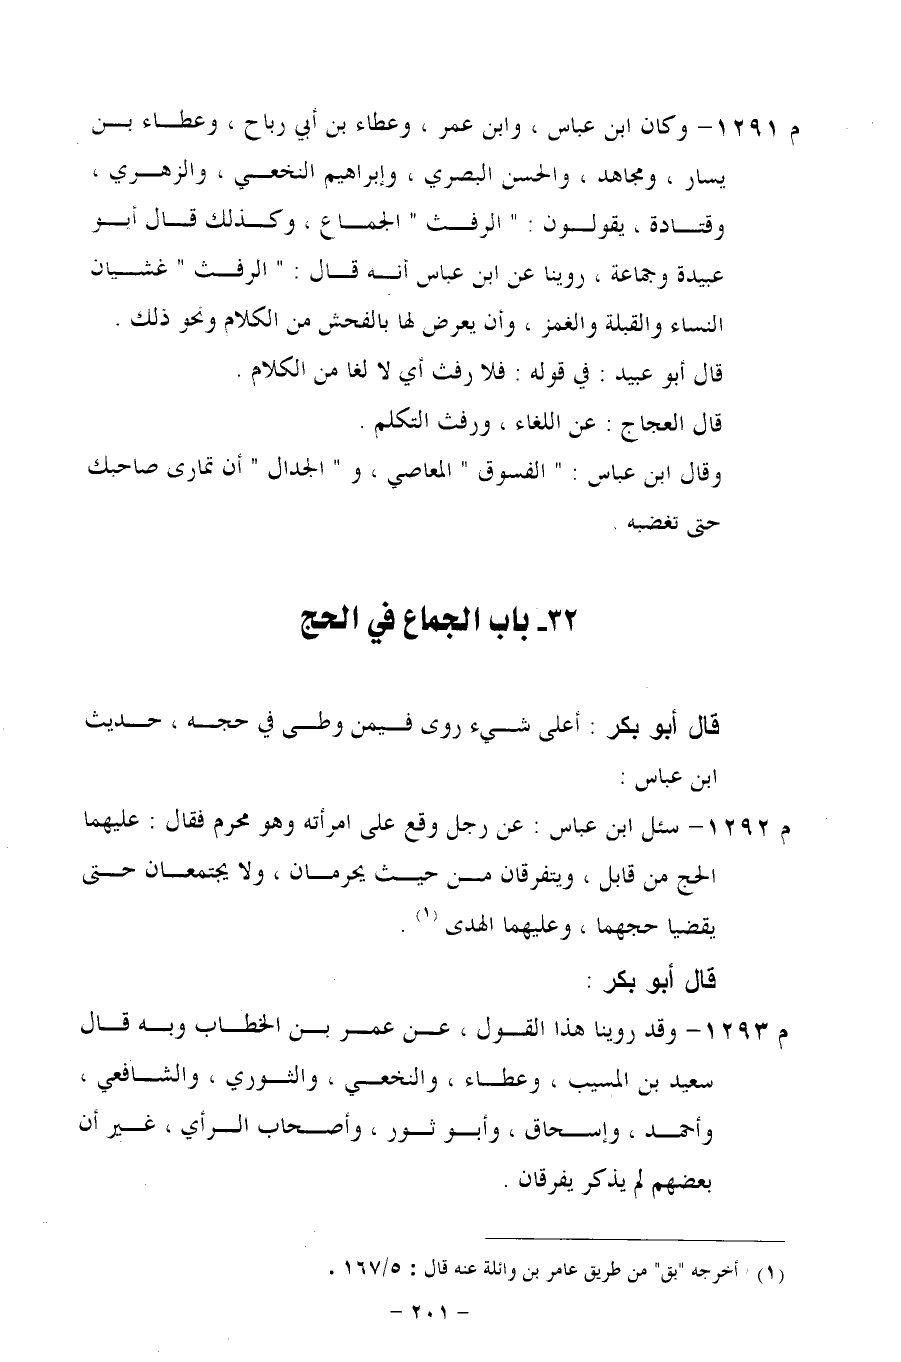 م ١٢٩١- وكان ابن عباس ، وابن عمر ، وعطاء بن أبي رباح ، وعطاء بن
يسار ، ومجاهد ، والحسن البصري ، وإبراهيم النخعي ، والزهري ،
وقتادة ، يقولون : " الرفث " الجماع ، وكذلك قال أبو
عبيدة وجماعة ، روينا عن ابن عباس أنه قال : " الرفث " غشيان
النساء والقبلة والغمز ، وأن يعرض لها بالفحش من الكلام ونحو ذلك .
قال أبو عبيد : في قوله : فلا رفث أي لا لغا من الكلام .
قال العجاج : عن اللغاء ، ورفث التكلم .
وقال ابن عباس : " الفسوق " المعاصي ، و " الجدال " أن تمارى صاحبك
حتى تغضبه .
٣٢ـ باب الجماع في الحج
قال أبو بكر : أعلى شيء روى فيمن وطى في حجه ، حديث
ابن عباس :
م ١٢٩٢- سئل ابن عباس : عن رجل وقع على امرأته وهو محرم فقال : عليهما
الحج من قابل ، ويتفرقان من حيث يحرمان ، ولا يجتمعان حتى
يقضيا حجهما ، وعليهما الهدى (١) .
قال أبو بكر :
م ١٢٩٣- وقد روينا هذا القول ، عن عمر بن الخطاب وبه قال
سعيد بن المسيب ، وعطاء ، والنخعي ، والثوري ، والشافعي ،
وأحمد ، وإسحاق ، وأبو ثور ، وأصحاب الرأي ، غير أن
بعضهم لم يذكر يفرقان .
(١) أخرجه "بق" من طريق عامر بن واثلة عنه قال : ١٦٧/٥ .
- ٢٠١ -